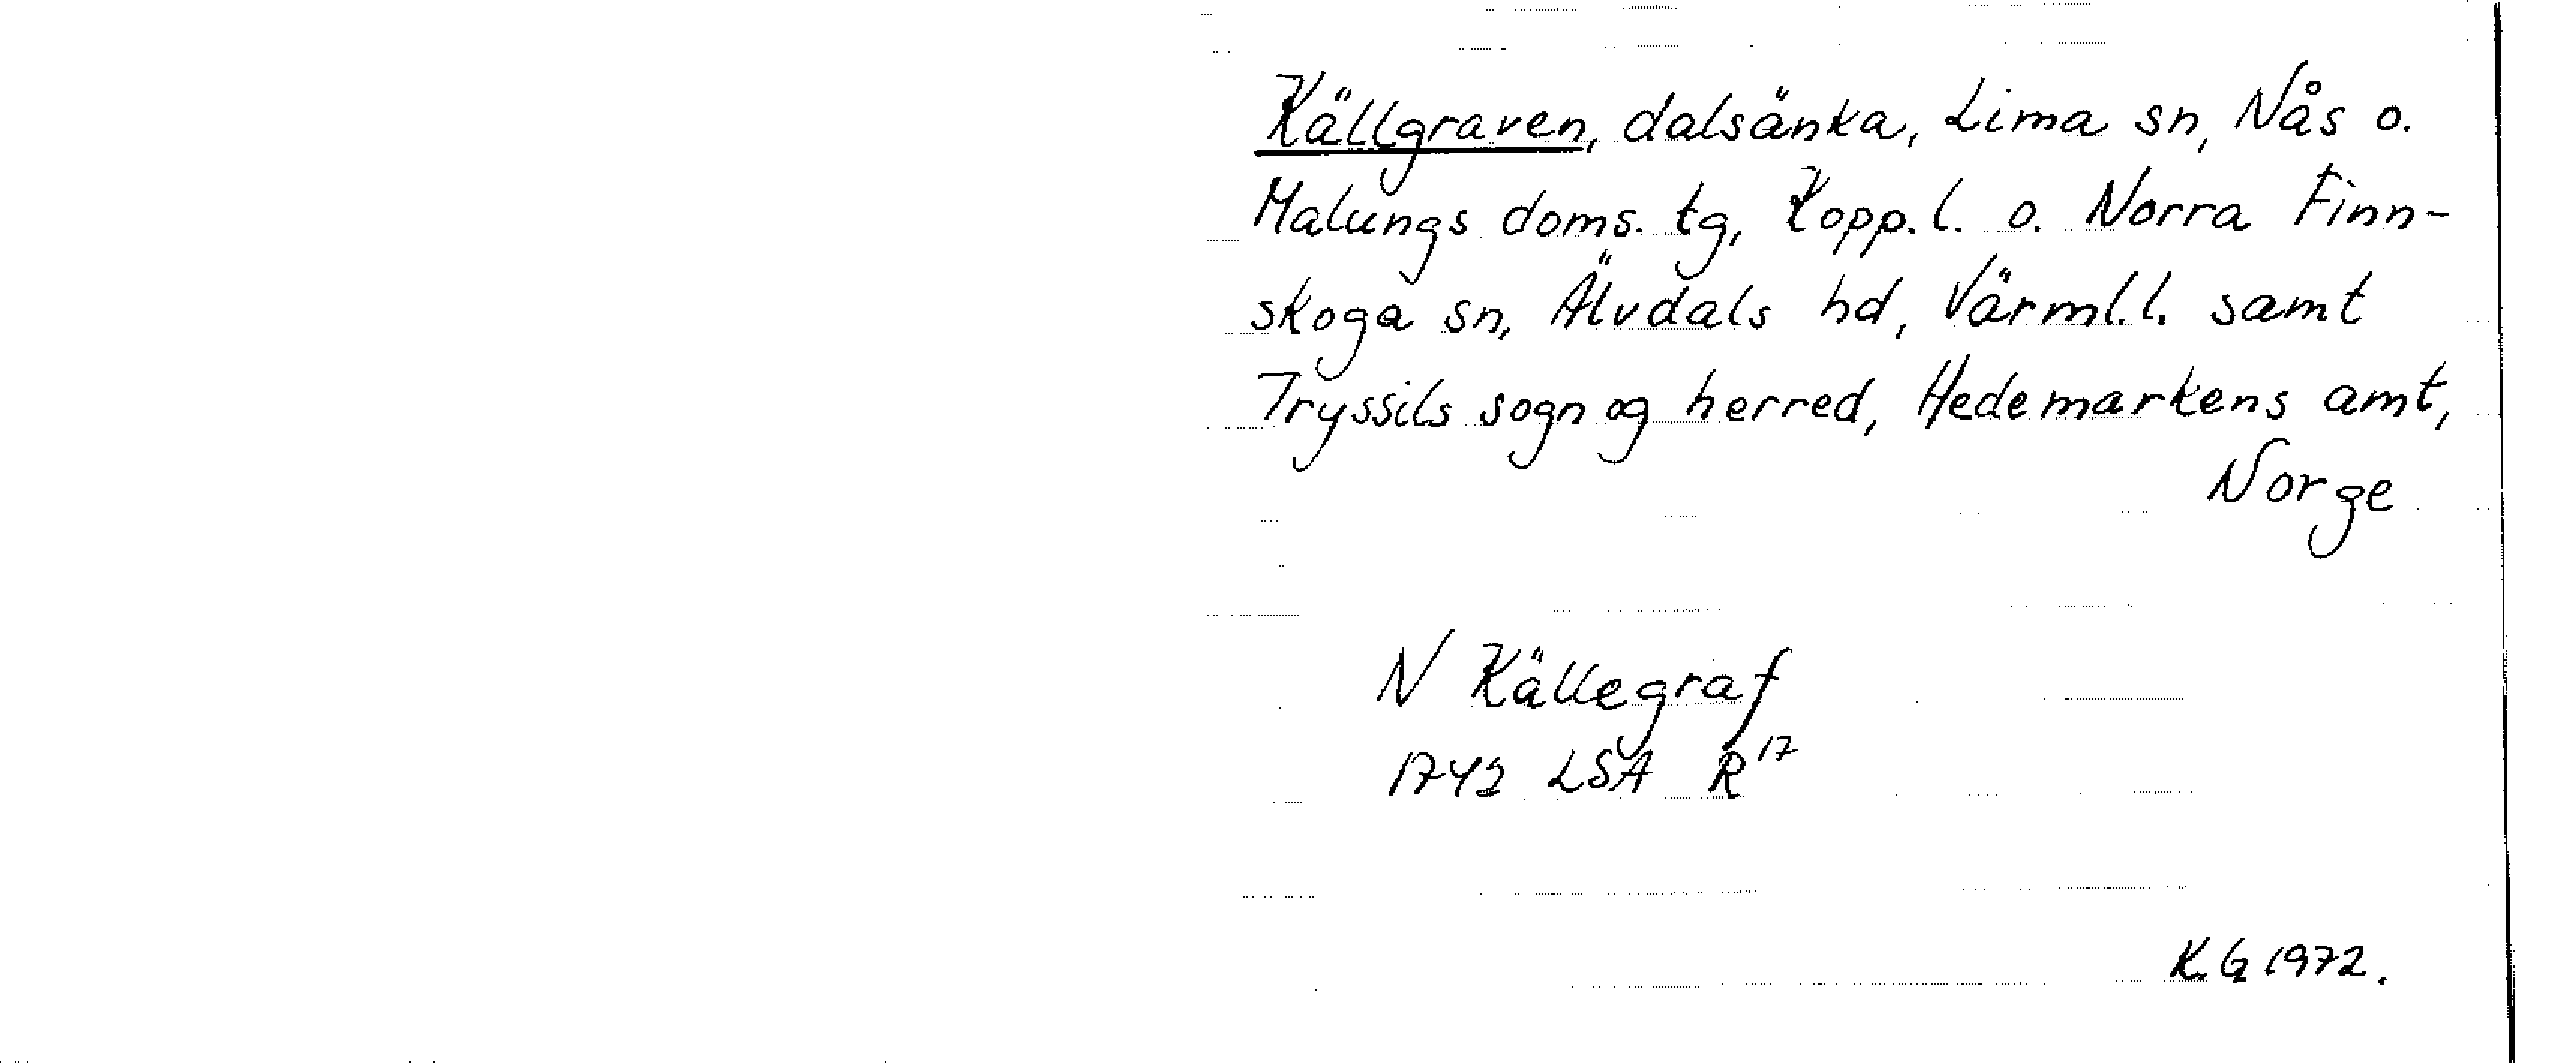 Källgraven, dalsänka, Lima sn, Nås o.
Malungs doms. tg, Kopp.l. o. Norra Finn-
skoga sn, Älvdals hd, Värml.l. samt
Tryssils sogn og herred, Hedemarkens amt,
Norge
N Källegraf
1742 LSA R17
KG 1972.